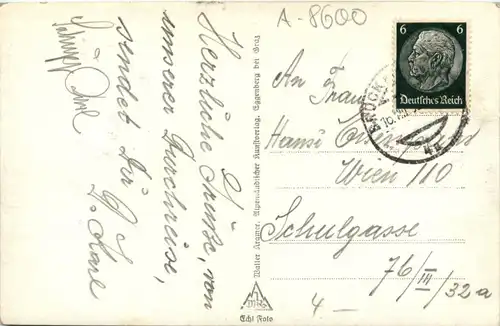 A-8600
Herzliche Grüße, von
unserer Durchreise,
sendet Dir
Karl
Walter Kramer, Alpenländischer Kunstverlag, Eggenberg bei Graz
Echt Foto
6 6
Deutsches Reich
BRUCK
An Frau
Hansi
Wien 110
Schulgasse
76/III/32a
4 –